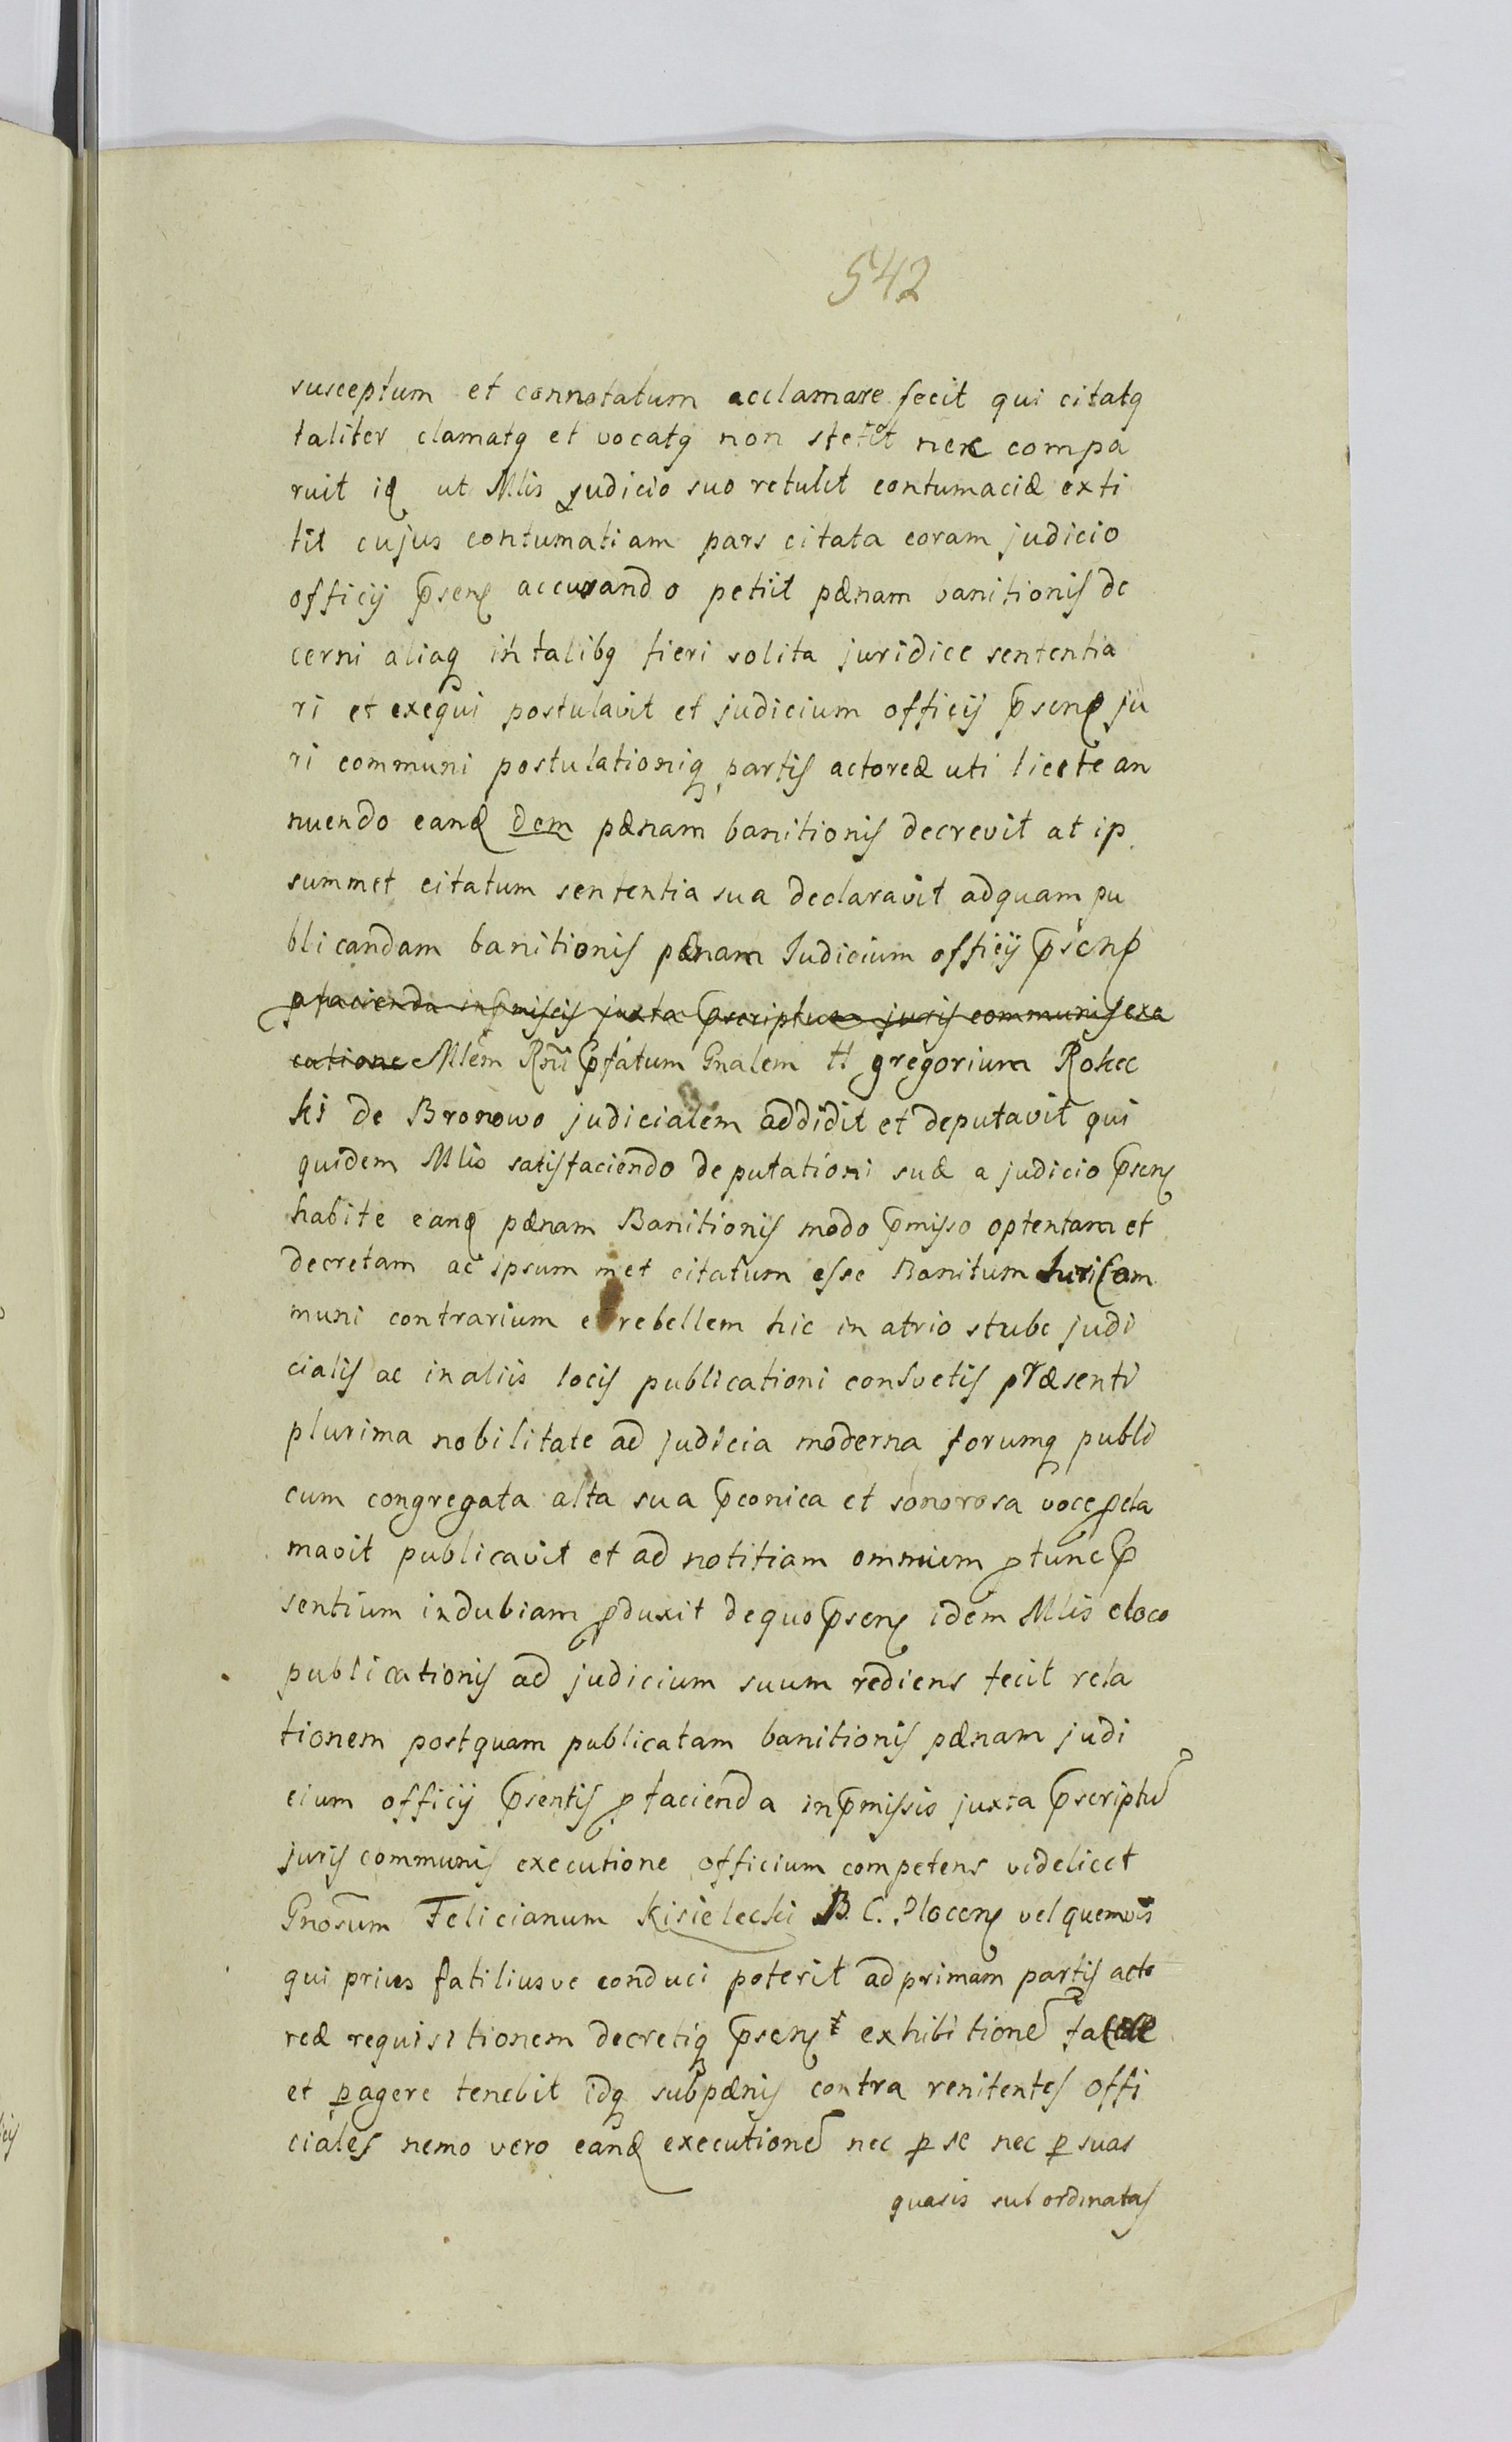 542
susceptum et connotatum acclamare fecit qui citatq
taliter clamatq et vocatq non stetit nec compa
ruit iq ut Mlis judicio suo retulit contumaciæ exti
tit cujus contumatiam pars citata coram judicio
officij p̄senſ accusando petiit pænam banitionis de
cerni aliaq in talibq fieri solita juridice sententia
ri et exequi postulavit et judicium officij p̄senſ ju
ri communi postulationiq partis actoreæ uti licite an
nuendo eanđ dem pænam banitionis decrevit at ip
summet citatum sententia sua declaravit adquam pu
blicandam banitionis pænam Iudicium officij p̄senſ
p facienda inp̄missis juxta p̄scriptum juris communis exe
cutione Mlem Rn̄i p̄fatum Gnalem H gregorium Rokec
ki de Bronowo judicialem addidit et deputavit qui
quidem Mlis satisfaciendo deputationi suæ a judicio p̄senſ
habite eanđ pænam Banitionis modo p̄misso optentam et
decretam ac ipsum met citatum esse Banitum Juri com
muni contrarium et rebellem hic in atrio stube judi
cialis ac in aliis locis publicationi consvetis præsenti
plurima nobilitate ad judicia moderna forumq publi
cum congregata alta sua p̄conica et sonorosa voce pcla
mavit publicavit et ad notitiam omnium ptunc p̄
sentium indubiam pduxit dequo p̄senſ idem Mlis eloco
publicationis ad judicium suum rediens fecit rela
tionem postquam publicatam banitionis pænam judi
cium officij p̄sentis p facienda inp̄missis juxta p̄scriptū
juris communis executione officium competens videlicet
Gnosum Felicianum Kisielecki B. C. Plocenſ vel quemvis
qui prius fatiliusve conduci poterit ad primam partis acto
reæ requisitionem decretiq p̄senſt exhibitionē facere
et pagere tenebit idq subpænis contra renitentes offi
ciales nemo vero eanđ executionē nec p se nec p suas
quasis subordinatas